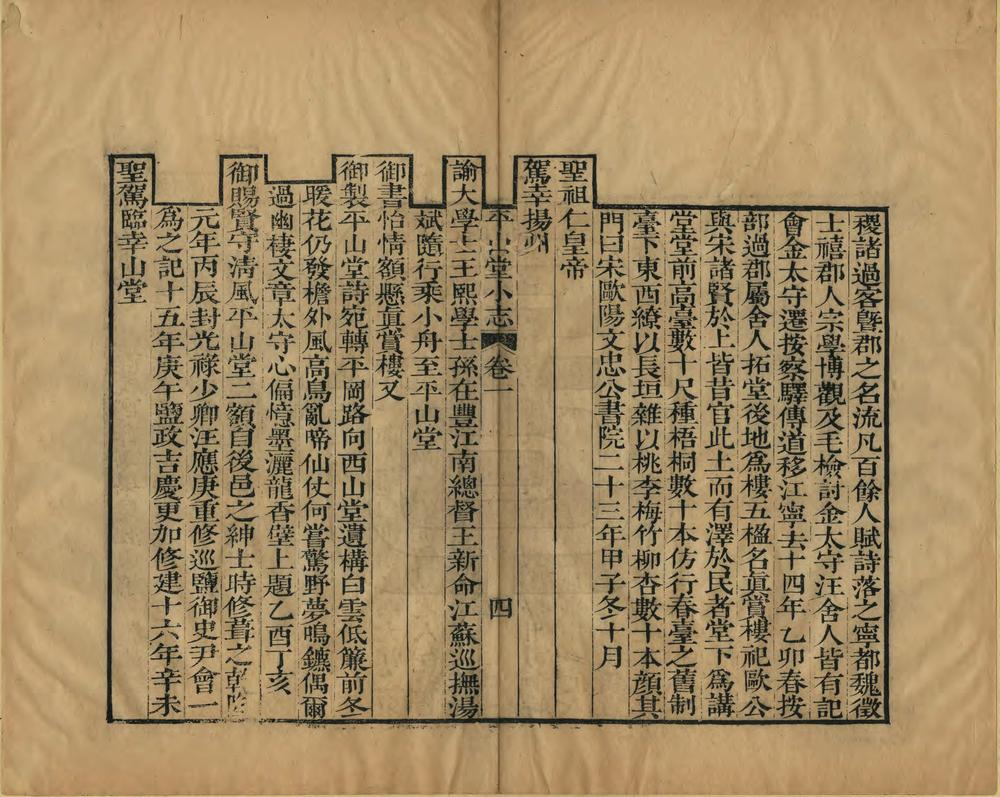 稷諸過客曁郡之名流凡百餘人賦詩落之寧都魏徵
士禧郡人宗學博觀及毛檢討金太守汪舍人皆有記
會金太守遷按察驛傳道移江寧去十四年乙卯春按
部過郡屬舍人拓堂後地爲樓五楹名眞賞樓祀歐公
與宋諸賢於上皆昔官此土而有澤於民者堂下爲講
堂堂前高臺數十尺種梧桐數十本仿行春臺之舊制
臺下東西繚以長垣雜以桃李梅竹柳杏數十本顏其
門曰宋歐陽文忠公書院二十三年甲子冬十月
聖祖仁皇帝
駕幸揚州
平山堂小志 卷一 四
諭大學士王熙學士孫在豐江南總督王新命江蘇巡撫湯
斌隨行乘小舟至平山堂
御書怡情額懸眞賞樓又
御製平山堂詩宛轉平岡路向西山堂遺構白雲低簾前冬
暖花仍發檐外風高鳥亂啼仙仗何嘗驚野夢鳴鑣偶爾
過幽棲文章太守心偏憶墨灑龍香壁上題乙酉丁亥
御賜賢守清風平山堂二額自後邑之紳士時修葺之乾隆
元年丙辰封光祿少卿汪應庚重修巡鹽御史尹會一
爲之記十五年庚午鹽政吉慶更加修建十六年辛未
聖駕臨幸山堂